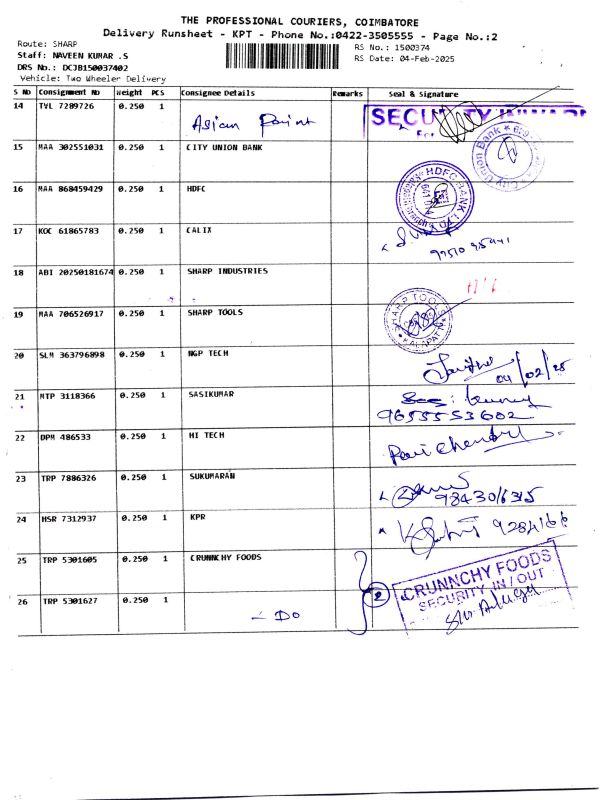 THE PROFESSIONAL COURIERS, COIMBATORE
Delivery Runsheet - KPT - Phone No.:0422-3505555 - Page No.:2
Route: SHARP
Staff: NAVEEN KUMAR .S
DRS No.: DCJB150037402
Vehicle: Two Wheeler Delivery
RS No.: 1500374
RS Date: 04-Feb-2025
S No Consignment No Weight PCS Consignee Details Remarks Seal & Signature
14 TYL 7289726 0.250 1 Asian Paint SECURITY INWARD
For
15 MAA 302551031 0.250 1 CITY UNION BANK
City Union Bank
16 MAA 868459429 0.250 1 HDFC
HDFC BANK LTD
17 KOC 61865783 0.250 1 CALIX
18 ABI 20250181674 0.250 1 SHARP INDUSTRIES
19 MAA 706526917 0.250 1 SHARP TOOLS
SHARP TOOLS
KALAPATTI
20 SLM 363796898 0.250 1 NGP TECH
04/02/25
21 MTP 3118366 0.250 1 SASIKUMAR
9655553602
22 DPM 486533 0.250 1 HI TECH
23 TRP 7886326 0.250 1 SUKUMARAN
24 HSR 7312937 0.250 1 KPR
25 TRP 5301605 0.250 1 CRUNNCHY FOODS
2
CRUNNCHY FOODS
SECURITY IN / OUT
26 TRP 5301627 0.250 1 - Do